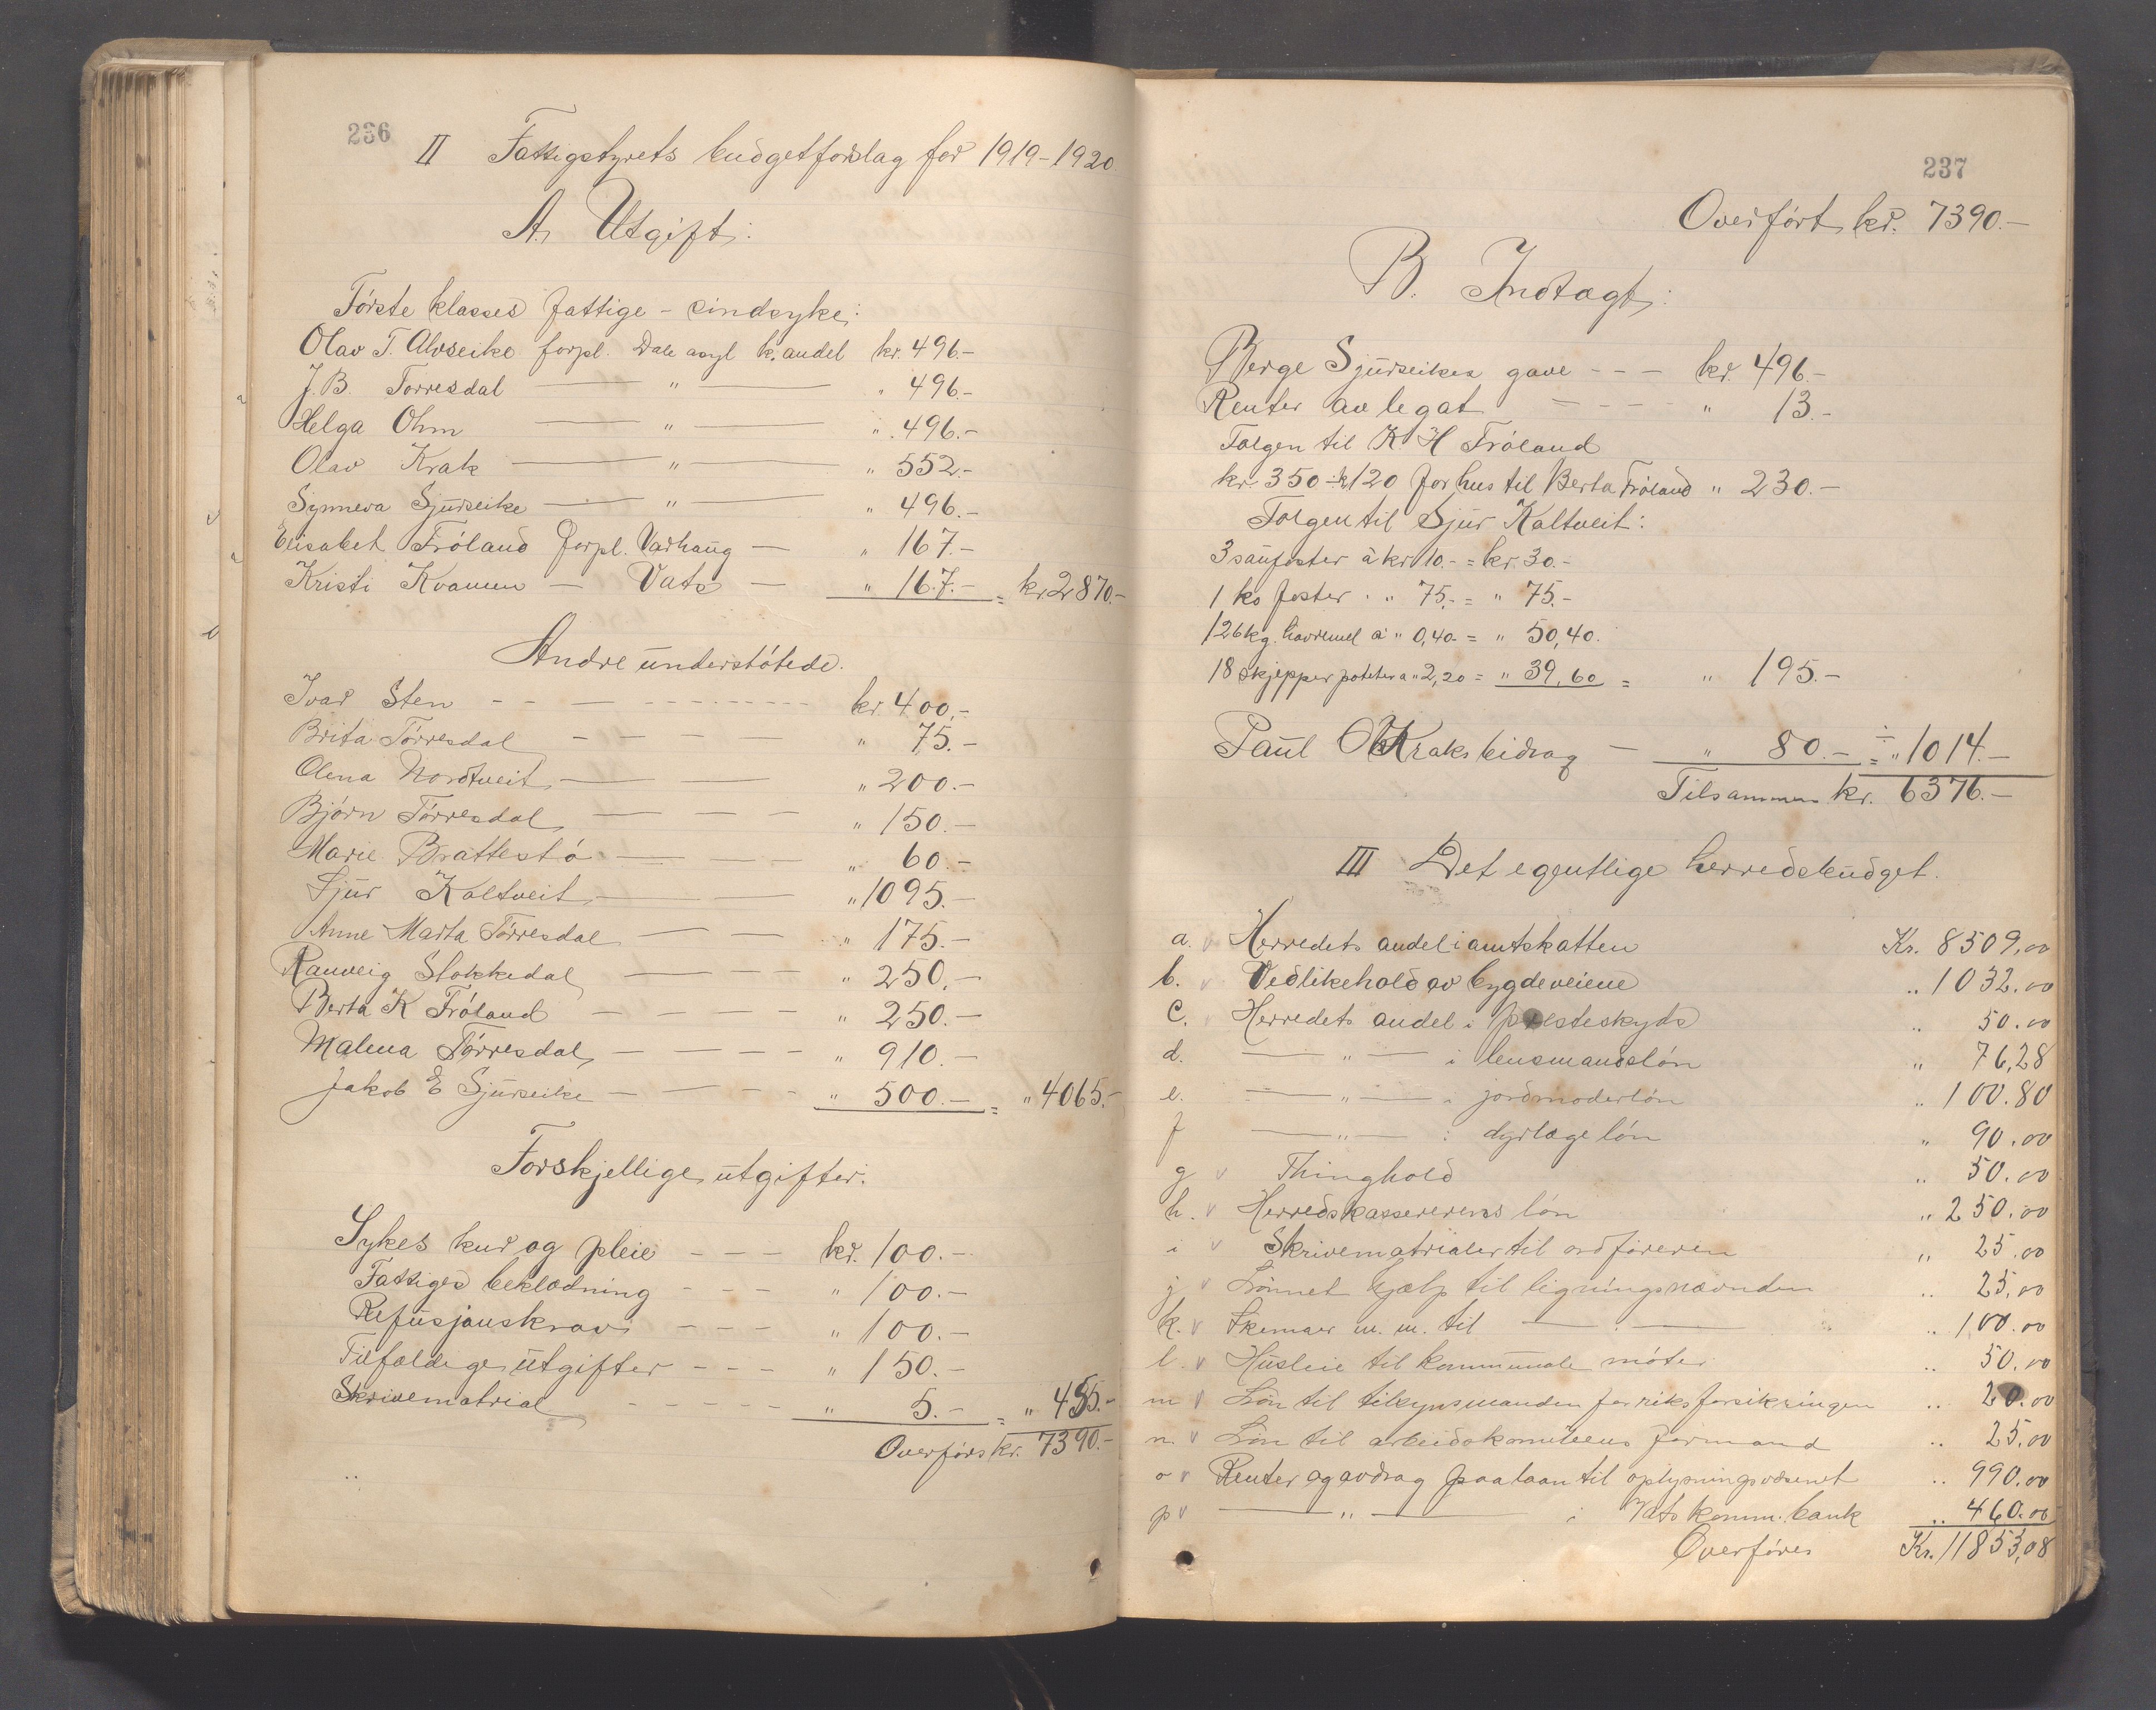 236
II Fattigstyrets budgetforslag for 1919-1920
A. Utgift:
Første klasses fattige - sindsyke:
Olav T. Alvseike forpl. Dale asyl k. andel kr. 496.-
J. B. Torresdal — " — " 496.-
Helga Ohm — " — " 496.-
Olav Krak — " — " 552.-
Synneva Sjurseike — " — " 496.-
Elisabet Frøland forpl. Varhaug — " 167.-
Kristi Kvamen — Vats — " 167.- = kr 2870.-
Andre understøtede.
Ivar Sten - - — - - - kr 400.-
Brita Tørresdal — — — — " 75.-
Olena Nordtveit — — — " 200.-
Bjørn Tørresdal — — — " 150.-
Marie Brattestø — — — " 60.-
Sjur Kaltveit — — " 1095.-
Anne Marta Tørresdal — — — " 175.-
Ranveig Stokkedal — — — " 250.-
Berta K Frøland — — — — " 250.-
Malena Tørresdal — — — — " 910.-
Jakob E Sjurseike — — — — " 500.- = " 4065.-
Forskjellige utgifter:
Sykes kur og pleie - - - kr. 100.-
Fattiges beklædning - - - " 100.-
Refusjonskrav - - - " 100.-
Tilfældige utgifter - - - " 150.-
Skrivematrial - - - - - " 5.- = " 455.-
Overføres kr. 7390.-
237
Overført kr. 7390.-
B. Indtægt:
Berge Sjurseikes gave - - - kr. 496.-
Renter av legat - - - - " 13.-
Følgen til K H Frøland
kr. 350 ÷ kr 120 for hus til Berta Frøland " 230.-
Følgen til Sjur Kaltveit:
3 saufoster à kr 10.- = kr. 30.-
1 ko foster . " 75.- = " 75.-
126 kg. havremel a " 0,40 = " 50,40.
18 skjepper poteter a " 2,20 = " 39,60 = " 195.-
Paul O Kraks bidrag — " 80.- = ÷ " 1014.-
Tilsammen kr. 6376.-
III Det egentlige herredsbudget.
a. v Herredets andel i amtskatten Kr. 8509,00
b. v Vedlikehold av bygdeveiene " 1032.00
c. v Herredets andel i presteskyds " 50.00
d. — " — i lensmandsløn " 76,28
e. — " — i jordmoderløn " 100.80
f — " — i dyrlægeløn " 90.00
g v Thinghold " 50.00
h. v Herredskassererens løn " 250.00
i v Skrivematrialer til ordføreren " 25.00
j v Lønnet hjælp til ligningsnævnden " 25,00
k. v Skemaer m. m. til — " — " 100.00
l. v Husleie til kommunale møter " 50.00
m v Løn til tilsynsmanden for riksforsikringen " 20.00
n. v Løn til arbeidskomiteens formand " 25.00
o v Renter og avdrag paa laan til oplysningsvæsenet " 990.00
p v — " — i Vats komm. bank " 460.00
Overføres Kr. 11853,08